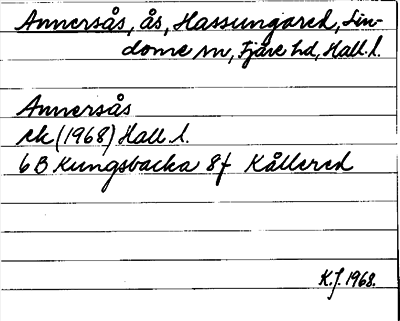 Annersås, ås, Hassungared, Lin-
dome sn, Fjäre hd, Hall. l.
Annersås
ek (1968) Hall. l.
6B Kungsbacka 8f Kållered
K.J. 1968.